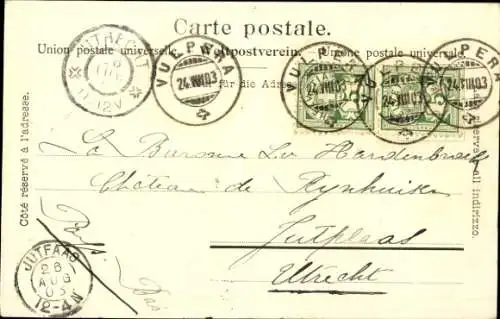 Carte postale.
Union postale universelle. Weltpostverein. Unione postale universale
für die Adresse
UTRECHT
12V
VULPERA
24.VIII.03
VULPERA
24.VIII.03
VULPERA
24.VIII.03
5
5
Côté réservé à l'adresse.
La Baronne Lv Hardenbroek
Château de Rijnhuizen
Jutphaas
Utrecht
Pays
Bas
JUTFAAS
26
AUG
03
12-4N
all' indirizzo.